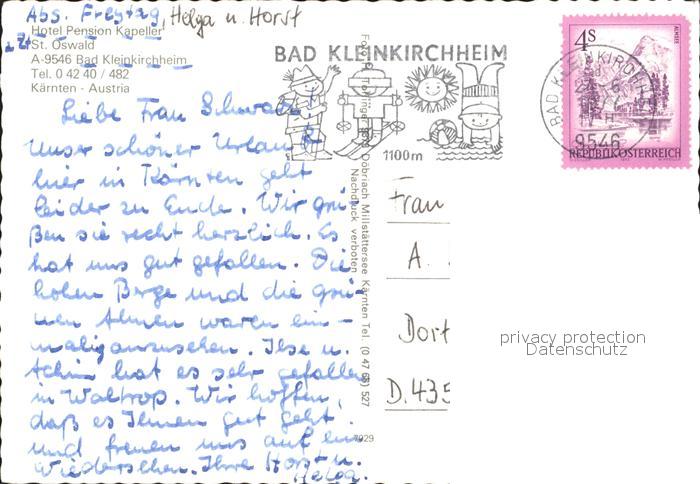 Abs. Freytag, Helga u. Horst
Hotel Pension Kapeller
z. Zt. St. Oswald
A-9546 Bad Kleinkirchheim
Tel. 0 42 40 / 482
Kärnten - Austria
Liebe Frau
Unser schöner Urlaub
hier in Kärnten geht
leider zu Ende. Wir grü-
ßen sie recht herzlich. Es
hat uns gut gefallen. Die
hohen Berge und die grü-
nen Almen waren ein-
malig anzusehen. Ilse u.
Achim hat es sehr gefallen
in Waltrop. Wir hoffen,
daß es Ihnen gut geht.
und freuen uns auf ein
Wiedersehen. Ihre Horst u.
Helga.
BAD KLEINKIRCHHEIM
1100m
Döbriach Millstättersee Kärnten Tel.
Nachdruck verboten
4S
ALMSEE
REPUBLIK ÖSTERREICH
BAD KLEINKIRCHHEIM
9546
Frau
A.
Dort
D.435
privacy protection
Datenschutz